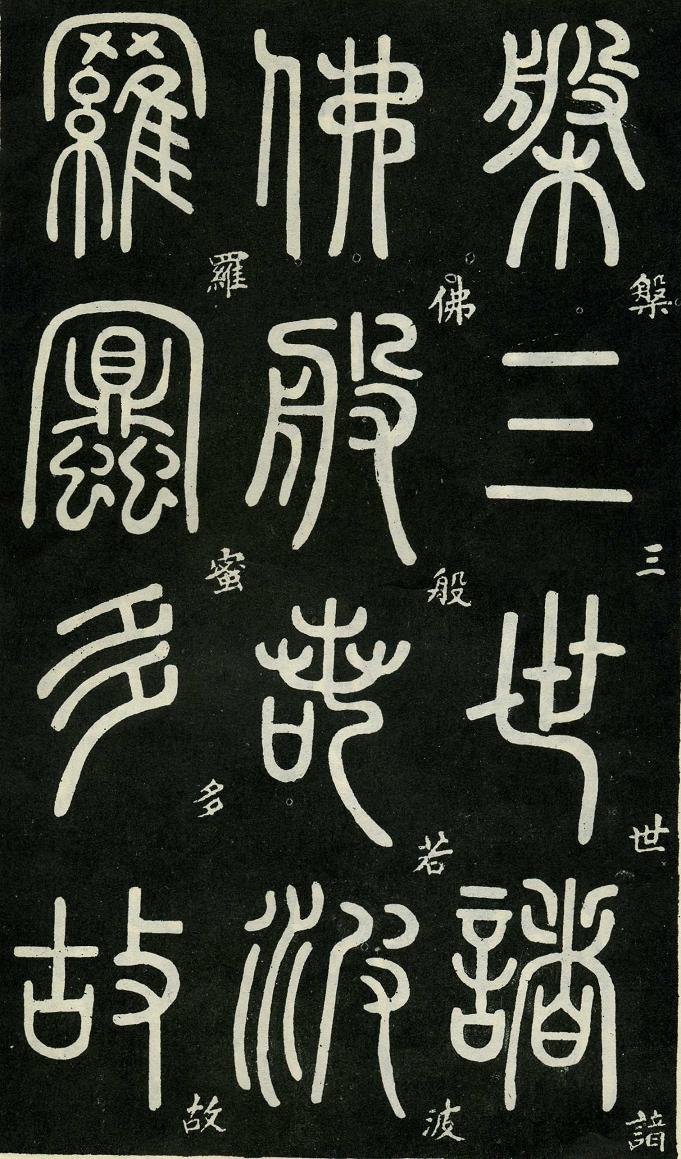 槃三世諸
槃三世諸
佛般若波
佛般若波
羅蜜多故
羅蜜多故